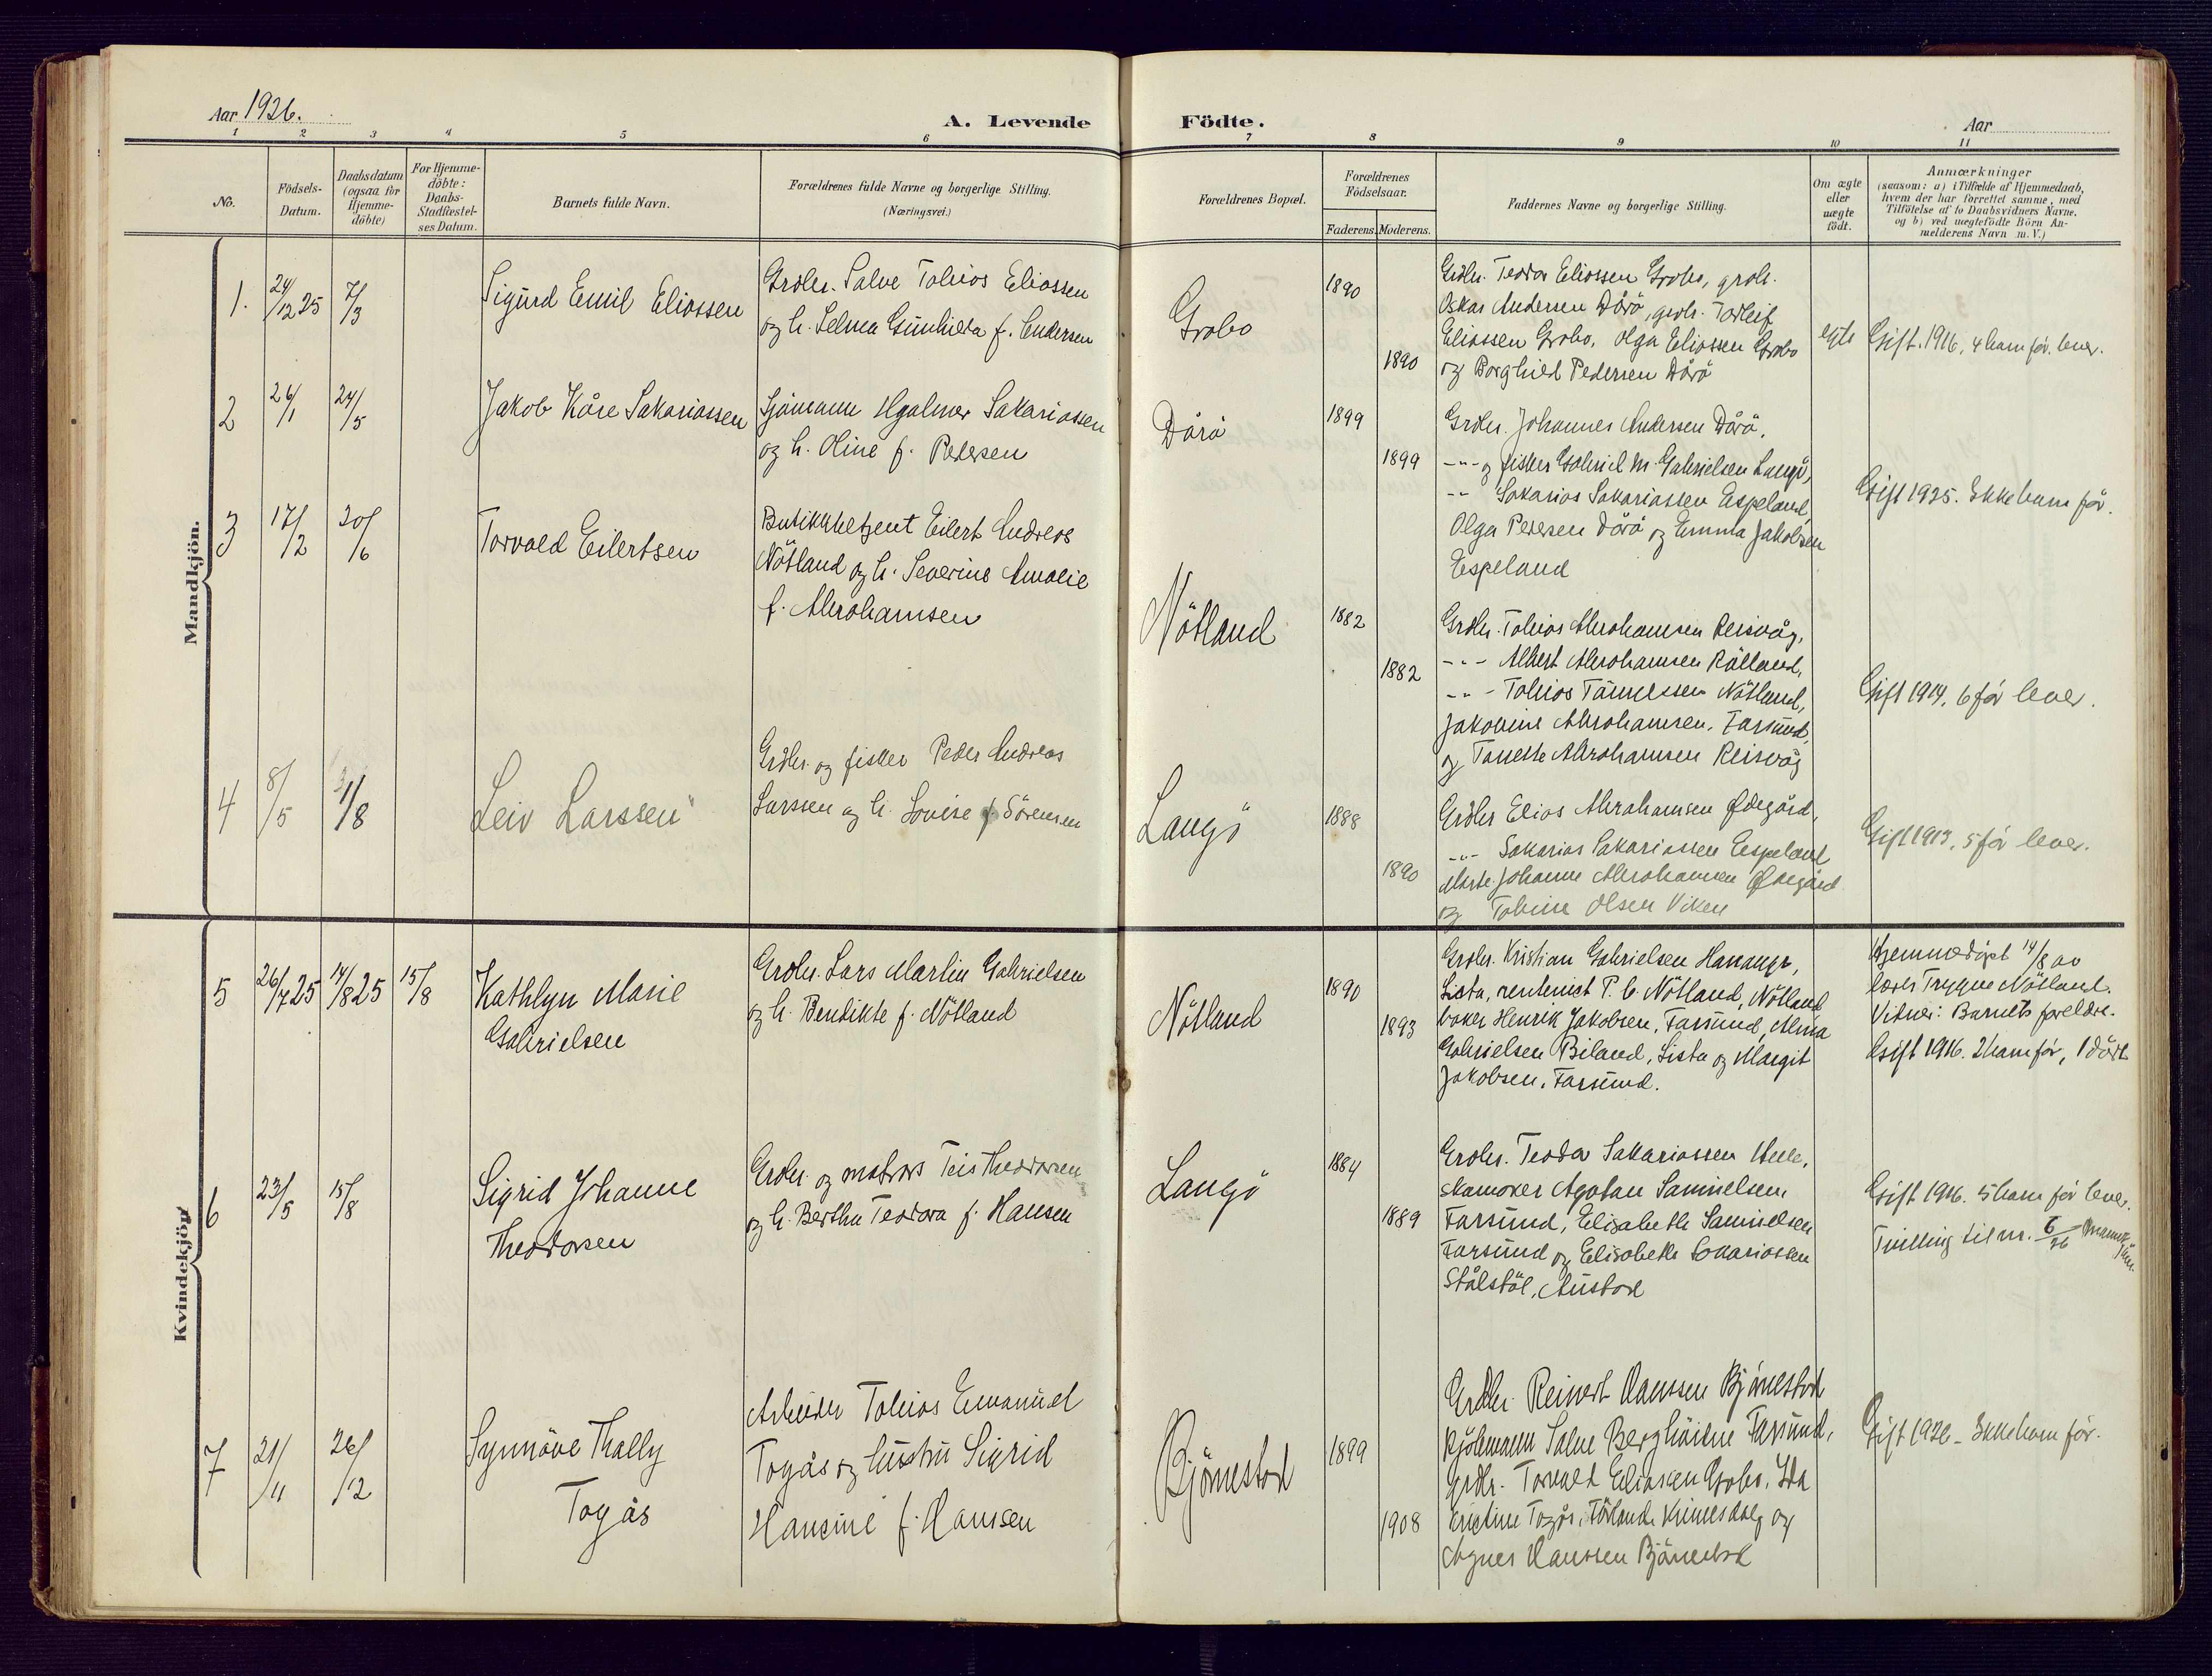 Aar 1926.
A. Levende Födte.
Aar
1 2 3 4 5 6 7 8 9 10 11
No.
Födsels-
Datum.
Daabsdatum
(ogsaa for
Hjemme-
döbte)
For Hjemme-
döbte:
Daabs-
Stadfæstel-
ses Datum.
Barnets fulde Navn.
Forældrenes fulde Navne og borgerlige Stilling.
(Næringsvei.)
Forældrenes Bopæl.
Forældrenes
Födselsaar.
Faderens. Moderens.
Faddernes Navne og borgerlige Stilling.
Om ægte
eller
uægte
födt.
Anmærkninger
(saasom: a) i Tilfælde af Hjemmedaab,
hvem der har forrettet samme, med
Tilföielse af to Daabsvidners Navne,
og b) ved uægtefödte Börn An-
melderens Navn m. V.)
Mandkjön.
1. 24/12 25 7/3
Sigurd Emil Eliassen
Grdbr. Salve Tobias Eliassen
og h. Selma Gunhilda f. Andersen
Grobo
1890
1890
Grdbr. Teodor Eliassen Grobo, grdb.
Oskar Andersen Dårå, grdb. Torleif
Eliassen Grobo, Olga Eliassen Grobo
og Borghild Pedersen Dårå
egte
Gift 1916, 4 barn før. lever.
2 26/1 24/5
Jakob Kåre Sakariassen
Sjömann Hjalmer Sakariassen
og h. Oline f. Pedersen
Dårå
1899
1899
Grdbr. Johannes Andersen Dårå,
-"- og fisker Gabriel M. Gabrielsen Langö,
-"- Sakarias Sakariassen Espeland,
Olga Pedersen Dårå og Emma Jakobsen
Espeland
Gift 1925. Ikke barn før.
3 17/2 20/6
Torvald Eilertsen
Butikkbetjent Eilert Andreas
Nötland og h. Severine Amalie
f. Abrahamsen
Nötland
1882
1882
Grdbr. Tobias Abrahamsen Reisvåg,
-"- Albert Abrahamsen
-"- Tobias Tönnessen Nötland,
Jakobine Abrahamsen, Farsund,
og Tonette Abrahamsen Reisvåg
Gift 1914, 6 før lever.
4 8/5 /8
Leiv Larssen
Grdbr. og fisker Peder Andreas
Larssen og h. Lovise f. Sörensen
Langö
1888
1890
Grdbr Elias Abrahamsen Ødegård,
-"- Sakarias Sakariassen Espeland
Marte Johanne Abrahamsen Ødegård
og Tobine Olsen Viken
Gift 1913, 5 før lever.
Kvindekjön
5 26/7 25 14/8 25 15/8
Kathlyn Marie
Gabrielsen
Grdbr. Lars Martin Gabrielsen
og h. Bendikte f. Nötland
Nötland
1890
1893
Grdbr. Kristian Gabrielsen Hanangr,
Lista, rentenist P. C. Nötland, Nötland
baker Henrik Jakobsen, Farsund, Alma
Gabrielsen Biland, Lista og Margit
Jakobsen, Farsund.
Hjemmedöpt 14/8 av
lærer Trygve Nötland.
Vitner: Barnets foreldre.
Gift 1916. 2 barn før, 1 dödt
6 23/5 15/8
Sigrid Johanne
Theodorsen
Grdbr. og matros Teis Theodorsen
og h. Bertha Teodora f. Hansen
Langö
1884
1889
Grdbr. Teodor Sakariassen
skomaker Agatan Samuelsen,
Farsund, Elisabeth Samuelsen
Farsund og Elisabeth Sakariassen
Stålstöl, Austad
Gift 1916. 5 barn før lever.
Tvilling til nr. 6/26 mannkjön.
7 21/11 26/12
Synnöve Thally
Togås
Arbeider Tobias Emanuel
Togås og hustru Sigrid
Hansine f. Hansen
Björnestad
1899
1908
Grdbr. Reinert Hanssen Björnestad
Sjömann Salve Farsund,
grdbr. Torvald Eliassen Grobo, Ida
Kristine Togås,
Agnes Hanssen Björnestad
Gift 1926 - Ikke barn før.